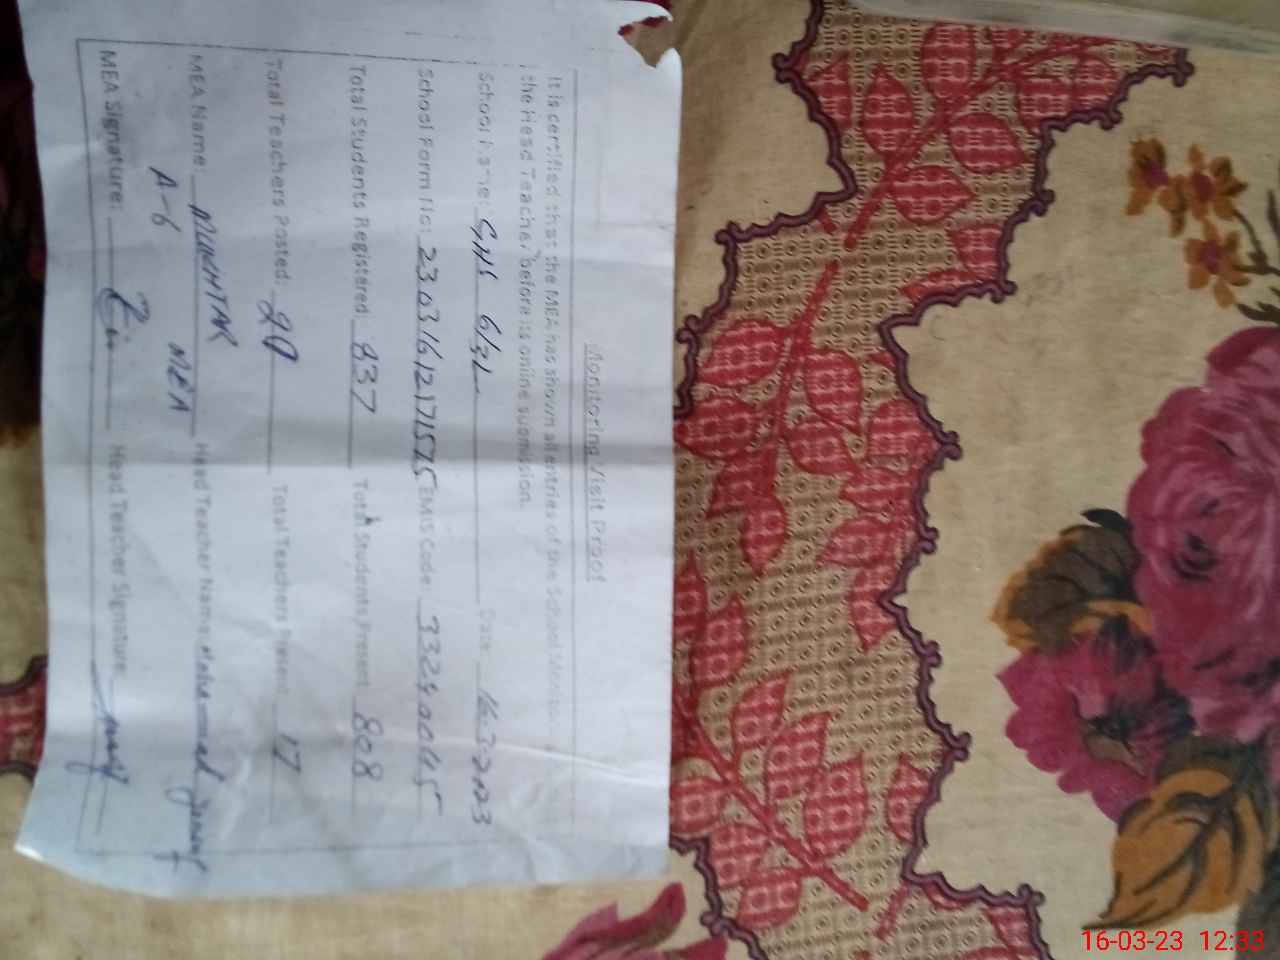 Monitoring Visit Proof
It is certified that the MEA has shown all entries of the School
the Head Teacher before its online submission.
School Name: GHS 6/3L Date: 16.3.2023
School Form No: 230316121715 75 EMIS Code:
Total Students Registered: 837 Total Students Present 808
Total Teachers Posted: 20 Total Teachers Present 17
MEA Name: MUKHTAR Head Teacher Name: Muhammad
A-6 MEA
MEA Signature: Head Teacher Signature:
16-03-23 12:33